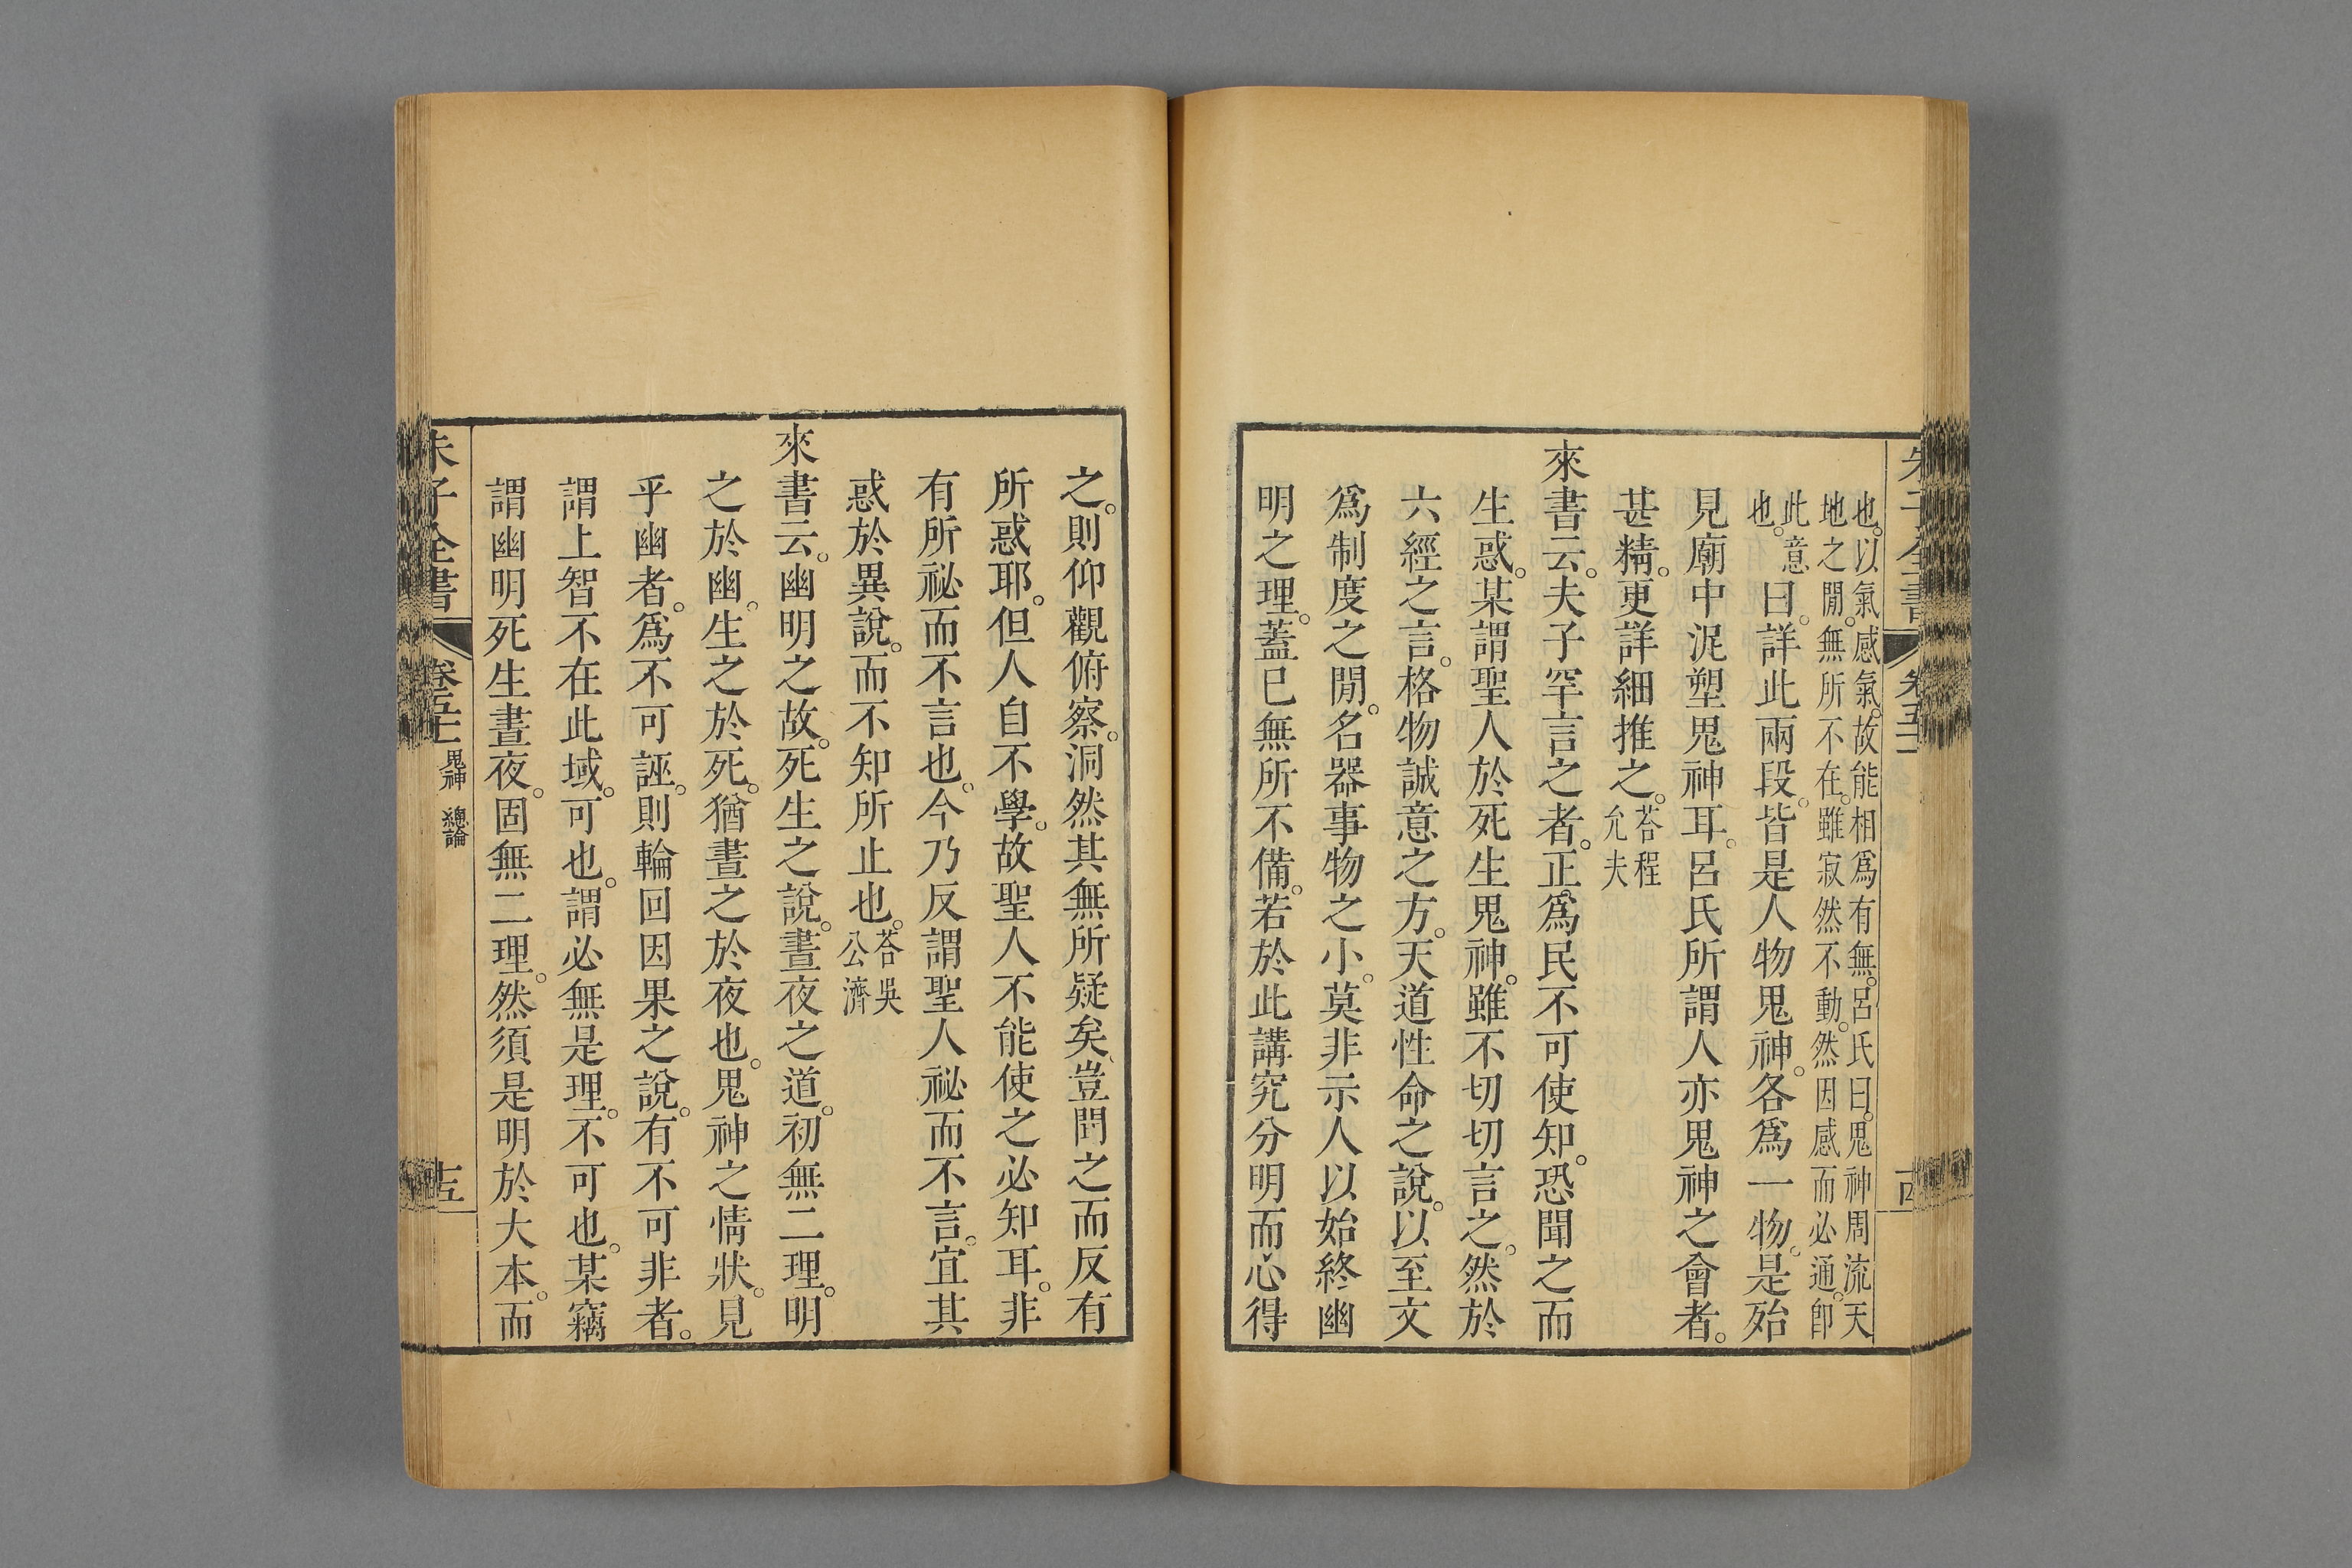 朱子全書 卷五十一
也。以氣感氣。故能相爲有無。呂氏曰。鬼神周流天
地之閒。無所不在。雖寂然不動。然因感而必通。卽
此意
也。
曰。詳此兩段。皆是人物鬼神。各爲一物。是殆
見廟中泥塑鬼神耳。呂氏所謂人亦鬼神之會者。
甚精。更詳細推之。
荅程
允夫
來書云。夫子罕言之者。正爲民不可使知。恐聞之而
生惑。某謂聖人於死生鬼神。雖不切切言之。然於
六經之言。格物誠意之方。天道性命之說。以至文
爲制度之閒。名器事物之小。莫非示人以始終幽
明之理。蓋已無所不備。若於此講究分明而心得
之。則仰觀俯察。洞然其無所疑矣、豈問之而反有
所惑耶。但人自不學。故聖人不能使之必知耳。非
有所祕而不言也。今乃反謂聖人祕而不言。宜其
惑於異說。而不知所止也。
荅吳
公濟
來書云。幽明之故。死生之說。晝夜之道。初無二理。明
之於幽。生之於死。猶晝之於夜也。鬼神之情狀。見
乎幽者。爲不可誣。則輪回因果之說。有不可非者。
謂上智不在此域。可也。謂必無是理。不可也。某竊
謂幽明死生晝夜。固無二理。然須是明於大本。而
朱子全書 卷五十一 鬼神 總論 十五